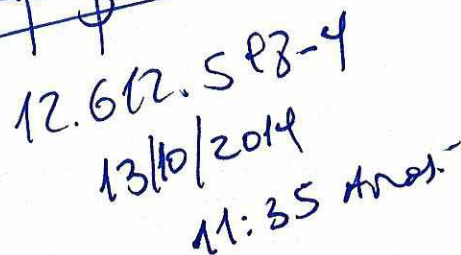 12.612.598-4
13/10/2014
11:35 Hrs.-